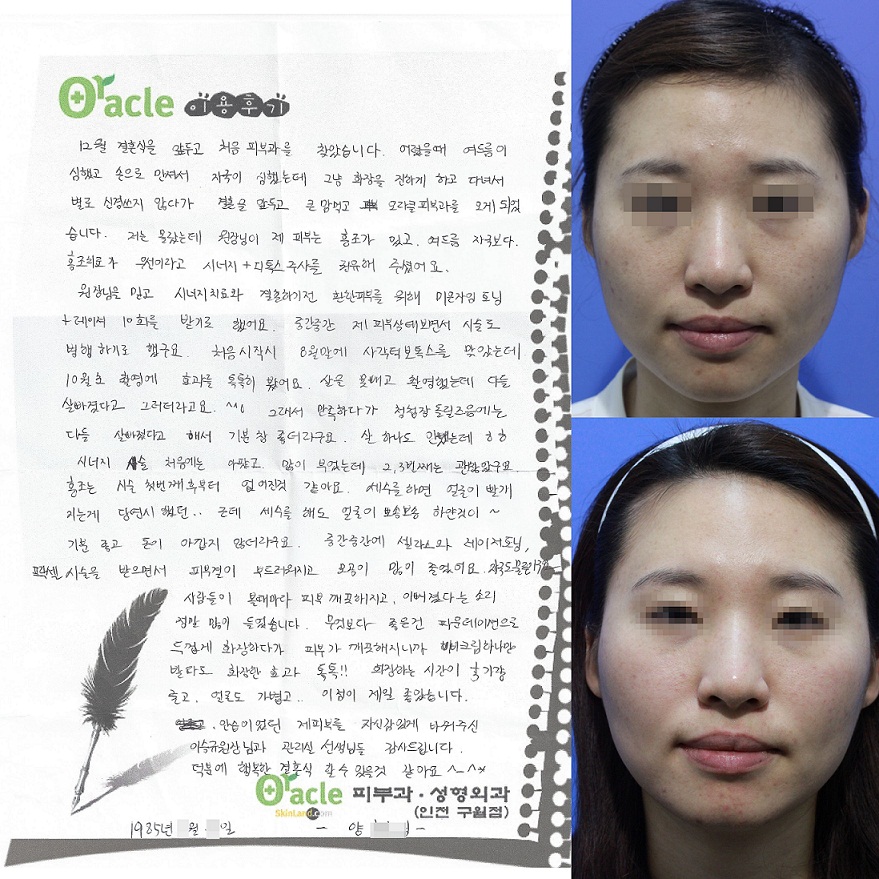 Oracle 이용후기
12월 결혼식을 앞두고 처음 피부과를 찾았습니다. 어렸을때 여드름이
심했고 손으로 만져서 자국이 심했는데 그냥 화장을 진하게 하고 다녀서
별로 신경쓰지 않다가 결혼을 앞두고 큰 맘먹고 오라클피부과를 오게 되었
습니다. 저는 몰랐는데 원장님이 제 피부는 홍조가 있고, 여드름 자국보다.
홍조치료가 우선이라고 시너지+디톡스주사를 권유해 주셨어요.
원장님을 믿고 시너지치료와 결혼하기전 환한피부를 위해 미온저검 토닝
+레이저 10회를 받기로 했어요. 중간중간 제 피부상태보면서 시술도
병행하기로 했구요. 처음시작시 8월말에 사각턱보톡스를 맞았는데
10월초 촬영에 효과를 톡톡히 봤어요. 살은 못빼고 촬영했는데 다들
살빠졌다고 그러더라고요. ^^ 그래서 만족하다가 청첩장 돌릴즈음에는
다들 살빠졌다고 해서 기분 참 좋더라구요. 살 하나도 안뺐는데 ㅎㅎ
시너지 시술 처음에는 아팠고 많이 부었는데 2,3번째는 괜찮았구요
홍조는 시술 첫번째후부터 없어진것 같아요. 세수를 하면 얼굴이 빨개
지는게 당연시 했던.. 근데 세수를 해도 얼굴이 뽀송뽀송 하얀것이 ~
기분 좋고 돈이 아깝지 않더라구요. 중간중간에 셀라스와 레이저토닝,
프락셀 시술을 받으면서 피부결이 부드러워지고 모공이 많이 줄었어요.
사람들이 볼때마다 피부 깨끗해지고, 이뻐졌다는 소리
정말 많이 들었습니다. 무엇보다 좋은건 파운데이션으로
두껍게 화장하다가 피부가 깨끗해지니까 비비크림하나만
발라도 화장한 효과 톡톡!! 화장하는 시간이 굉장히
줄고, 얼굴도 가볍고.. 이점이 제일 좋았습니다.
안습이었던 제피부를 자신감있게 바꿔주신
이승규원장님과 관리실 선생님들 감사드립니다.
덕분에 행복한 결혼식 할 수 있을것 같아요 ^-^*
Oracle 피부과·성형외과
SkinLand.com (인천 구월점)
1985년 월 일 - 양 -